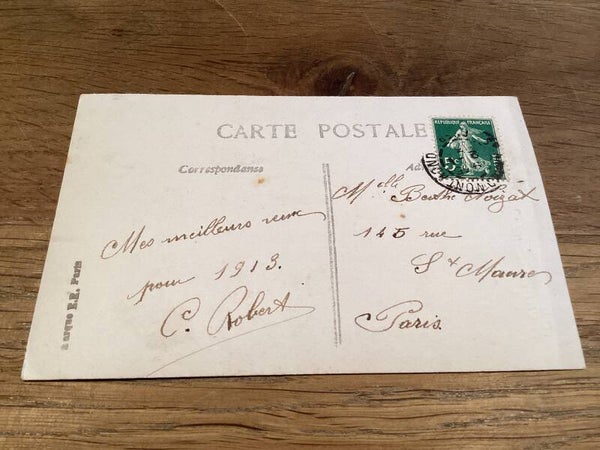 CARTE POSTALE
Correspondance
REPUBLIQUE FRANÇAISE
5
Mes meilleurs vœux
pour 1913.
C. Robert
Melle Berthe
145 rue
St Maur
Paris
Marque E.R. Paris